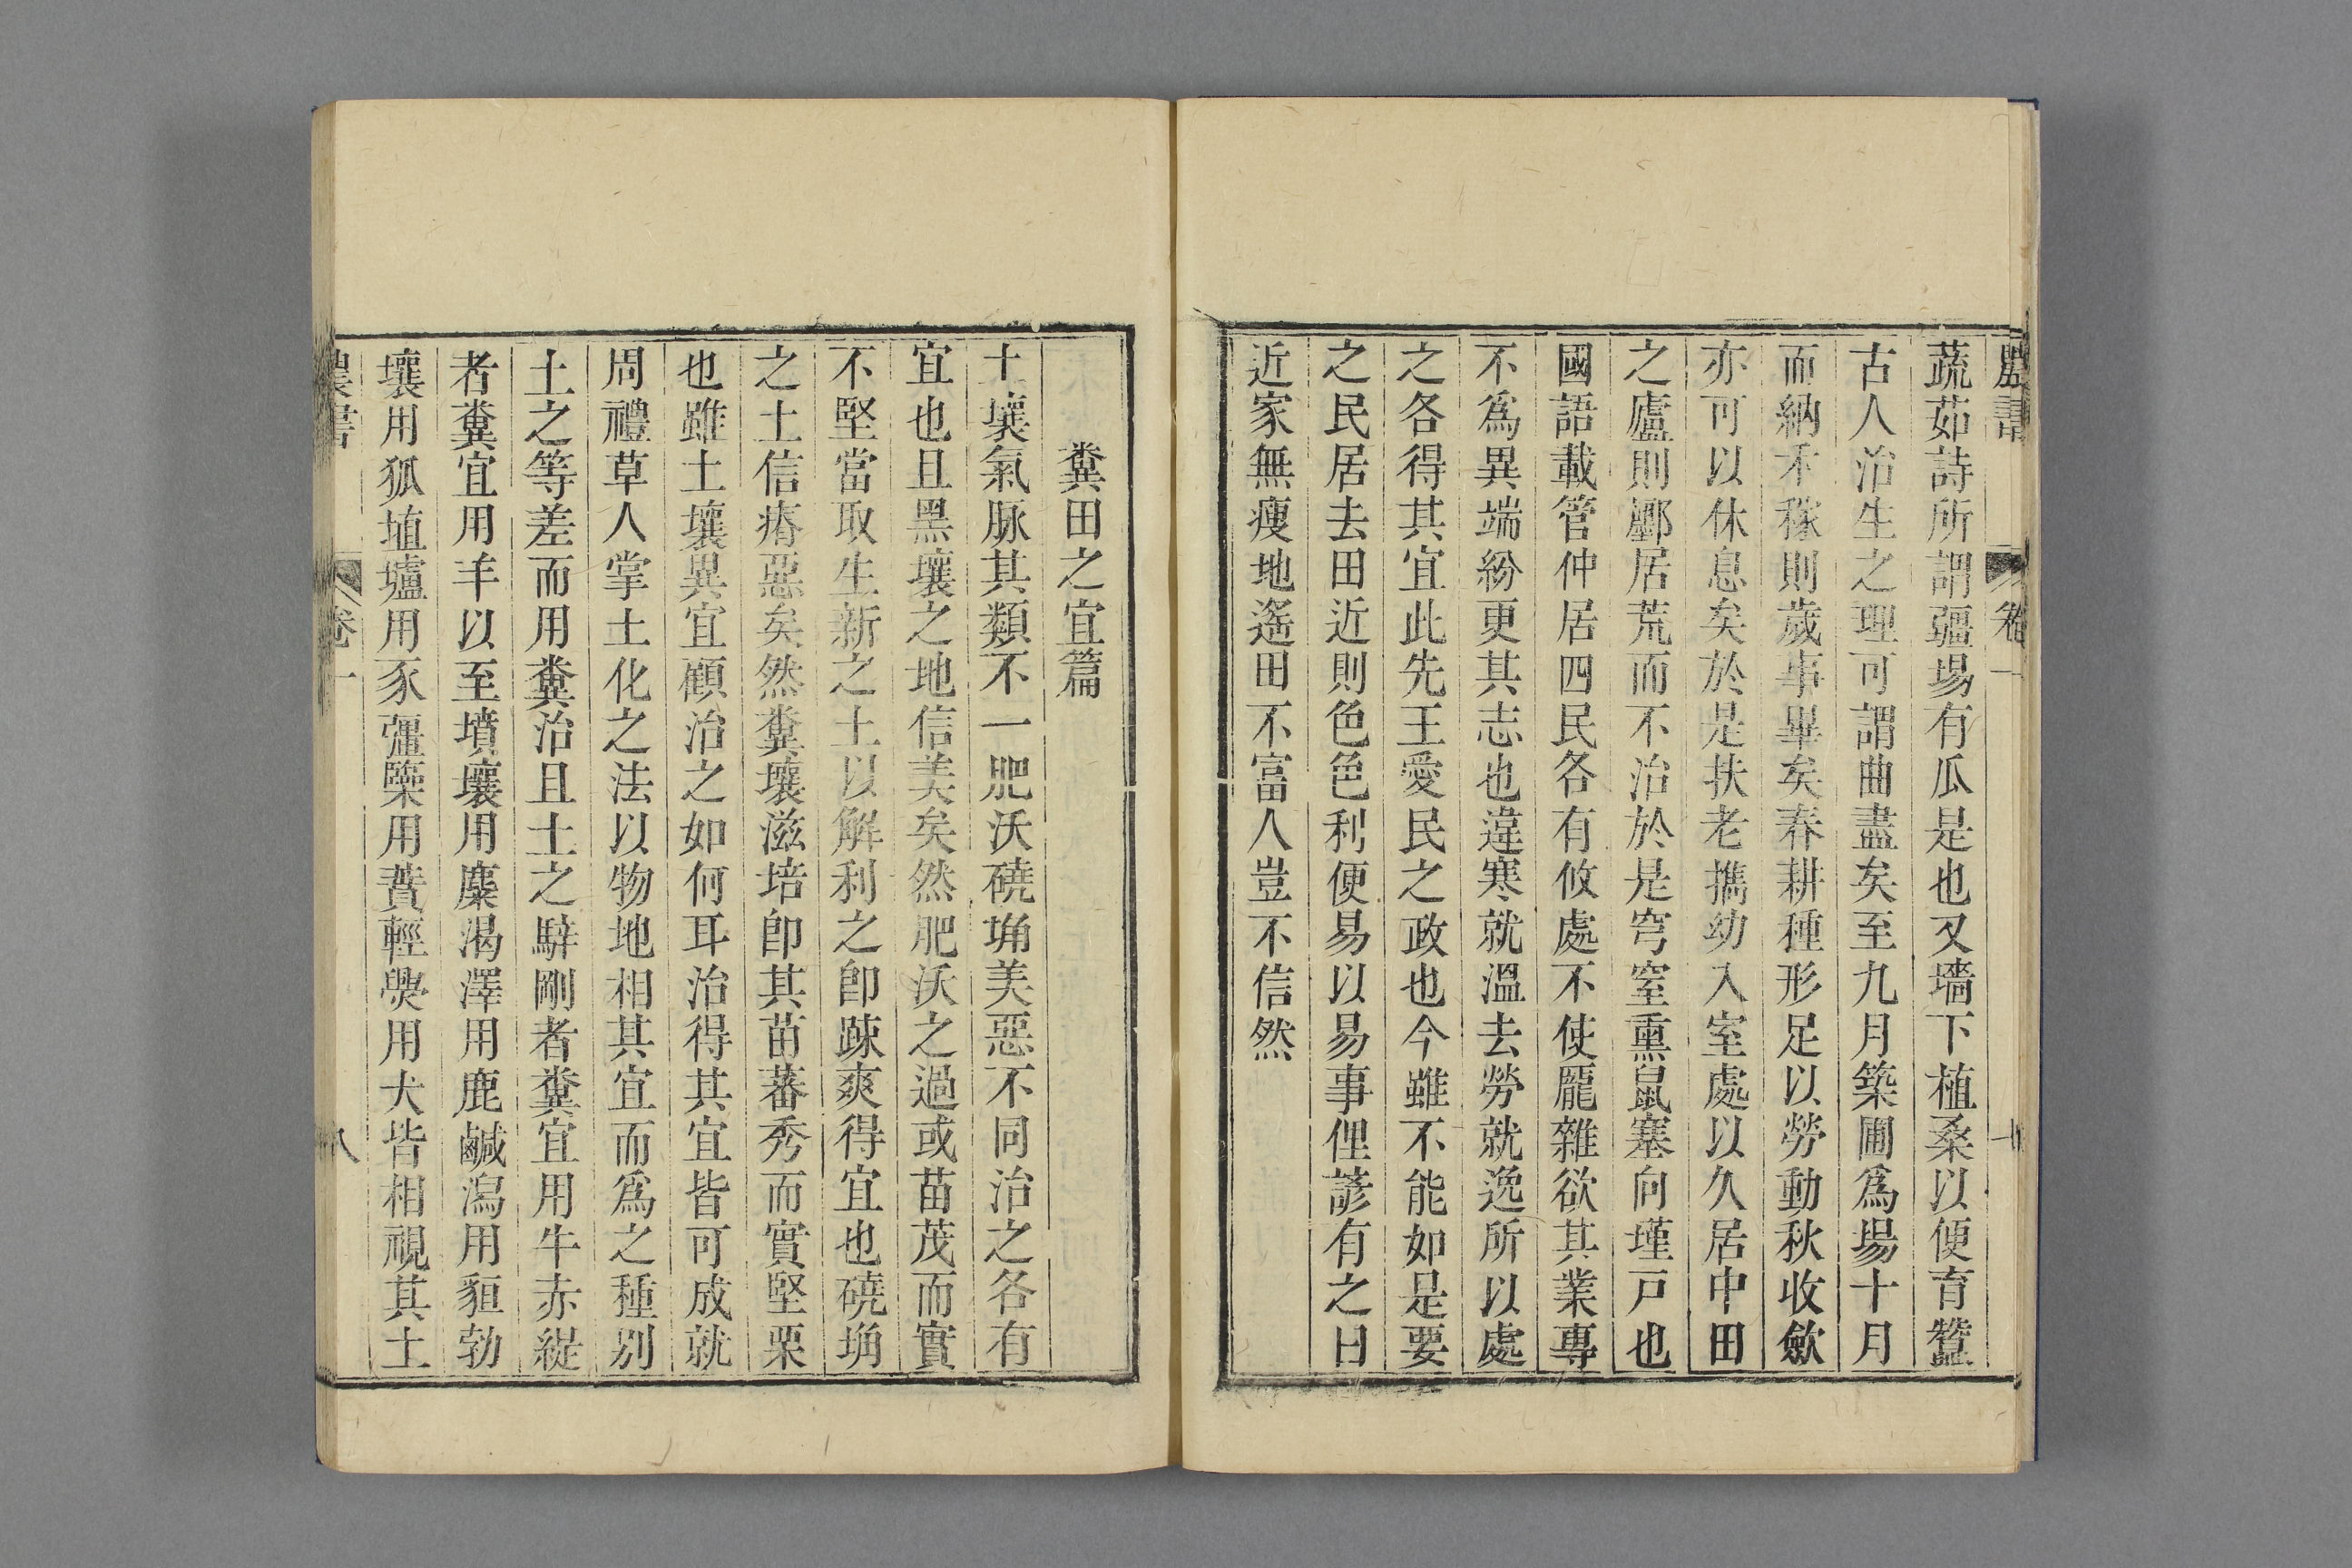 農書 卷一 七
蔬茹詩所謂疆場有瓜是也又墻下植桑以便育蠶
古人治生之理可謂曲盡矣至九月築圃爲場十月
而納禾稼則歲事畢矣春耕種形足以勞動秋收斂
亦可以休息矣於是扶老攜幼入室處以久居中田
之廬則鄽居荒而不治於是穹窒熏鼠塞向墐戸也
國語載管仲居四民各有攸處不使龎雜欲其業專
不爲異端紛更其志也違寒就溫去勞就逸所以處
之各得其宜此先王愛民之政也今雖不能如是要
之民居去田近則色色利便易以易事俚諺有之曰
近家無瘦地遙田不富人豈不信然
糞田之宜篇
土壤氣脉其類不一肥沃磽埆美惡不同治之各有
宜也且黑壤之地信美矣然肥沃之過或苗茂而實
不堅當取生新之土以解利之卽踈爽得宜也磽埆
之土信瘠惡矣然糞壤滋培卽其苗蕃秀而實堅栗
也雖土壤異宜顧治之如何耳治得其宜皆可成就
周禮草人掌土化之法以物地相其宜而爲之種别
土之等差而用糞治且土之騂剛者糞宜用牛赤緹
者糞宜用羊以至墳壤用麋渴澤用鹿鹹潟用貆勃
壤用狐埴壚用豕彊㯺用蕡輕㸑用犬皆相視其土
農書 卷一 八